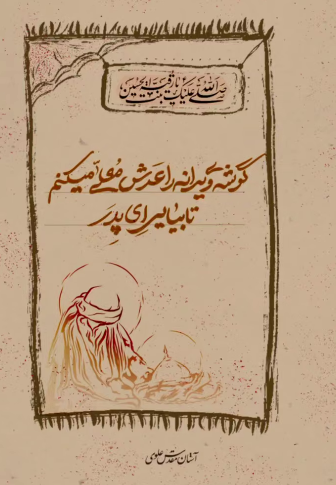 صلی الله علیک یا رقیة بنت الحسین
گوشه ویرانه را عرش معلی میکنم
تا بیایی ای پدر
آستان مقدس علوی